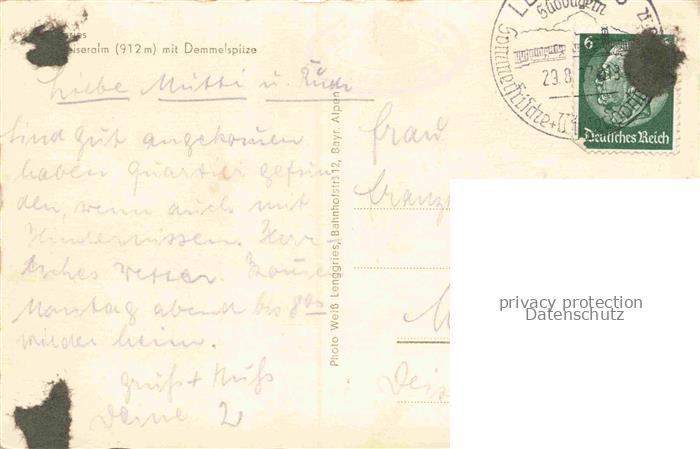 (912 m) mit Demmelspitze
Liebe Mutti u. Rudi
Sind gut angekommen
haben Quartier gefun
den, wenn auch mit
Hindernissen. Herr
liches Wetter.
Montag abend bis 8
wieder heim.
Gruß + Kuß
Deine 2
Photo Weiß Lenggries, Bahnhofstr. 12, Bayr. Alpen
Frau
Südbayern
29.8.
6
Deutsches Reich
privacy protection
Datenschutz